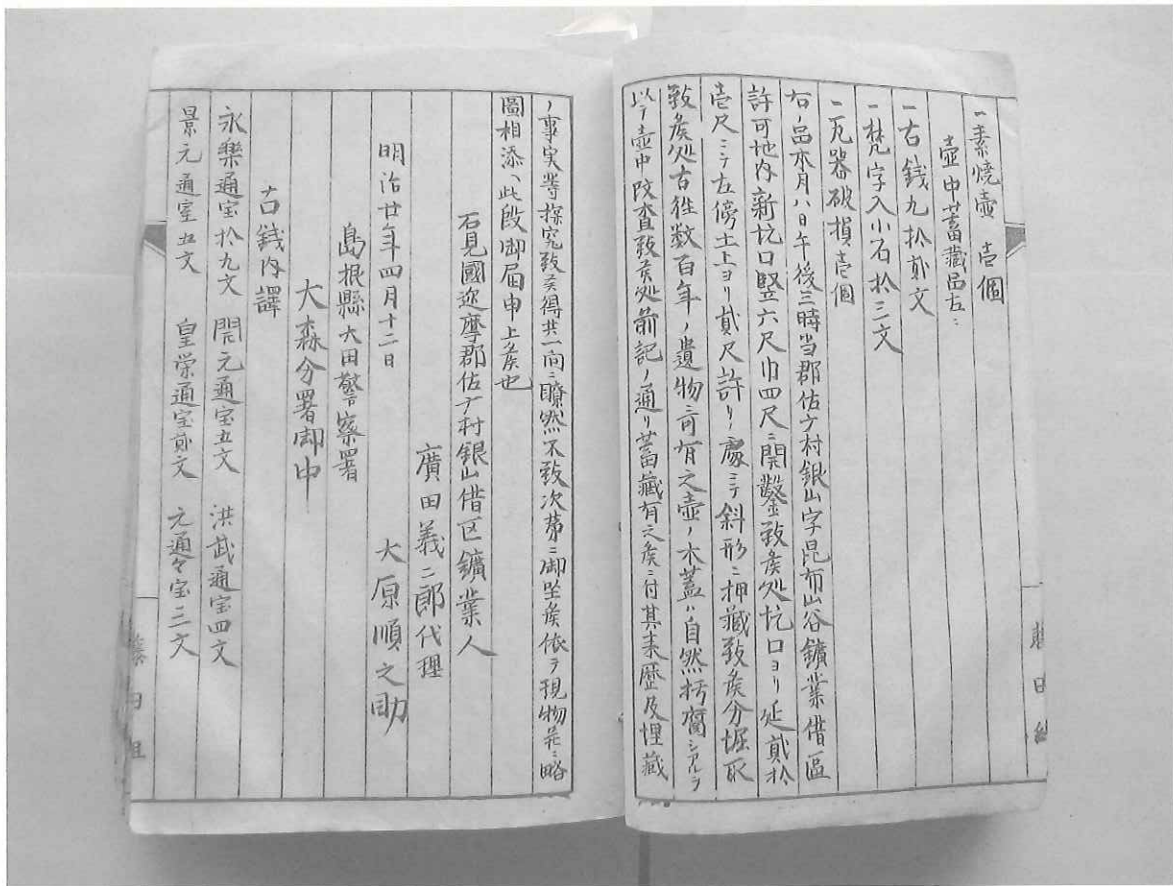 一素焼壺　壱個
壺中蓄藏品左ニ
一古銭九拾貳文
一梵字入小石拾三文
一瓦器破損壱個
右ノ品本月八日午後三時当郡佐ケ村銀山字昆布山谷鑛業借區
許可地内新坑口竪六尺巾四尺ニ開鑿致候処坑口ヨリ延貳拾
壱尺ニテ左傍土上ヨリ貳尺許リノ處ニテ斜形ニ押藏致候分堀取
致候処古徃数百年ノ遺物ニ可有之壺ノ木蓋ハ自然朽腐シアルヲ
以テ壺中改査致候処前記ノ通リ蓄藏有之候ニ付其来歴及埋藏
ノ事実等探究致候得共一向ニ瞭然不致次第ニ御坐候依テ現物并ニ略
圖相添ヘ此段御届申上候也
石見國迩摩郡佐ケ村銀山借区鑛業人
廣田義二郎代理
大原順之助
明治廿年四月十二日
島根縣大田警察署
大森分署御中
古銭内譯
永樂通宝拾九文　開元通宝五文　洪武通宝四文
景元通宝五文　皇栄通宝貳文　元通々宝三文
藤田組
藤田組